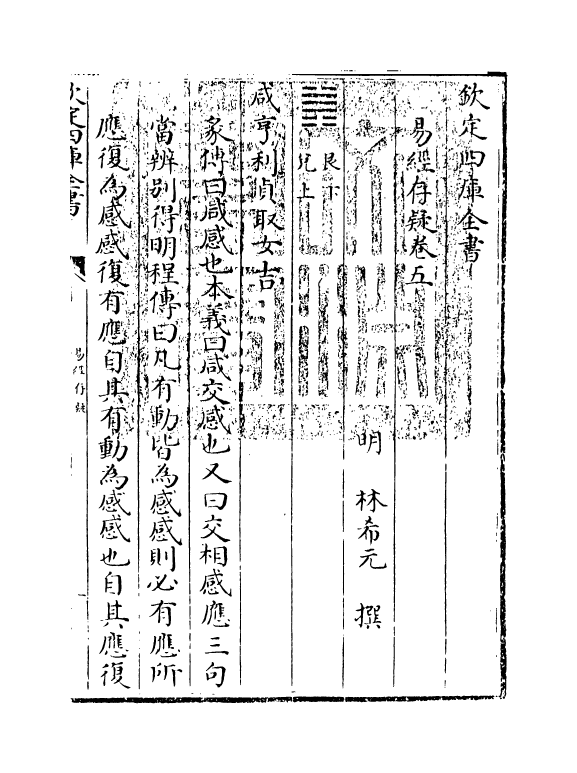 欽定四庫全書
易經存疑卷五
明 林希元 撰
艮下
兌上
咸亨利貞取女吉
彖傳曰咸感也本義曰咸交感也又曰交相感應三句
當辨別得明程傳曰凡有動皆為感感則必有應所
應復為感感復有應自其有動為感感也自其應復
欽定四庫全書
易經存疑